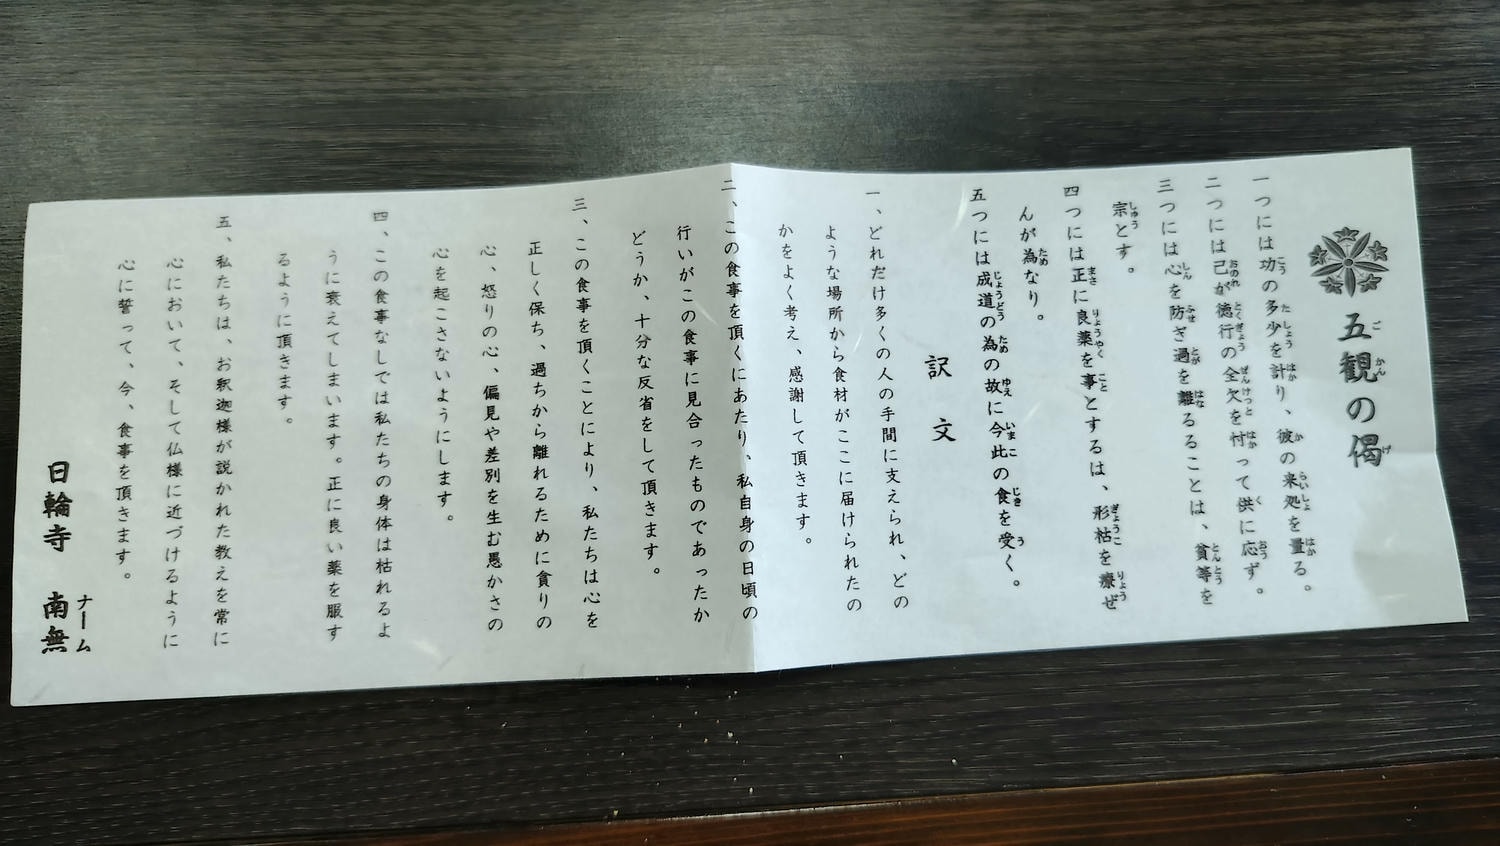 五観の偈
一つには功の多少を計り、彼の来処を量る。
二つには己が徳行の全欠を忖って供に応ず。
三つには心を防ぎ過を離るることは、貪等を
宗とす。
四つには正に良薬を事とするは、形枯を療ぜ
んが為なり。
五つには成道の為の故に今此の食を受く。
訳文
一、どれだけ多くの人の手間に支えられ、どの
ような場所から食材がここに届けられたの
かをよく考え、感謝して頂きます。
二、この食事を頂くにあたり、私自身の日頃の
行いがこの食事に見合ったものであったか
どうか、十分な反省をして頂きます。
三、この食事を頂くことにより、私たちは心を
正しく保ち、過ちから離れるために貪りの
心、怒りの心、偏見や差別を生む愚かさの
心を起こさないようにします。
四、この食事なしでは私たちの身体は枯れるよ
うに衰えてしまいます。正に良い薬を服す
るように頂きます。
五、私たちは、お釈迦様が説かれた教えを常に
心において、そして仏様に近づけるように
心に誓って、今、食事を頂きます。
日輪寺 南無
ナーム